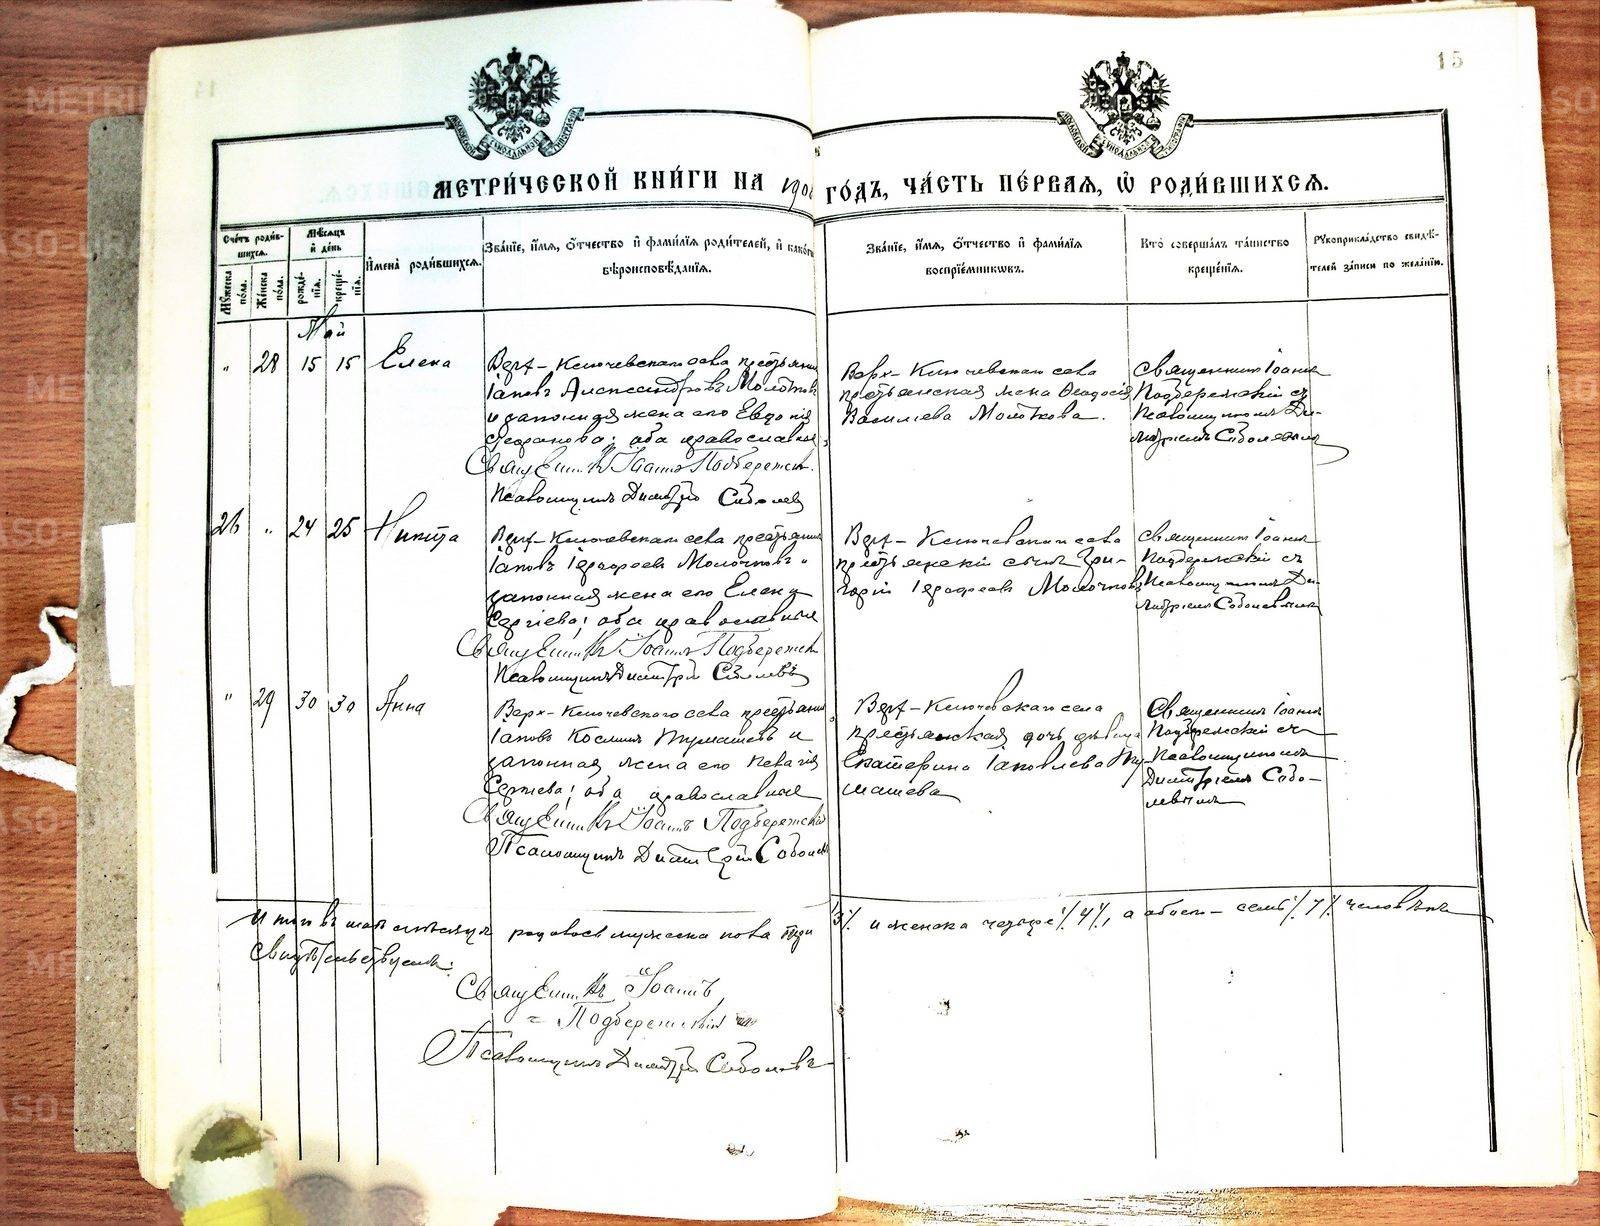 15
МЕТРИ́ЧЕСКОЙ КНИ́ГИ НА 190 ГО́ДЪ, ЧА́СТЬ ПЕ́РВАѦ, Ѿ РОДИ́ВШИХСѦ.
Сче́тъ роди́в-
шихсѧ.
Мꙋжеска по́ла.
Же́нска по́ла.
Мѣ́сѧцъ
и҆ де́нь
рожде́-
нїѧ.
креще́-
нїѧ.
И҆мена̀ роди́вшихсѧ.
Зва́нїе, и҆́мѧ, ѻ҆́тчество и҆ фами́лїѧ роди́телей, и҆ како́гѡ
вѣроисповѣ́данїѧ.
Зва́нїе, и҆́мѧ, ѻ҆́тчество и҆ фами́лїѧ
воспрїе́мникѡвъ.
Кто̀ соверша́лъ та́инство
креще́нїѧ.
Рꙋкоприкла́дство свидѣ́-
телей за́писи по жела́нїю.
Май
" 28 15 15 Елена
Верх-Ключевскаго села крестьянинъ
Іаковъ Александровъ Молотковъ
и законная жена его Евдокія
Стефанова; оба православные
Священникъ Іоаннъ Подбережскій
Псаломщикъ Димитрій Соболевъ
Верх-Ключевскаго села
крестьянская жена Ѳеодосія
Василіева Молоткова.
Священникъ Іоаннъ
Подбережскій съ
Псаломщикомъ Ди-
митріемъ Соболевымъ
26 " 24 25 Никита
Верх-Ключевскаго села крестьянинъ
Іаковъ Іерофеевъ Молочковъ и
законная жена его Елена
Сергіева; оба православные
Священникъ Іоаннъ Подбережскій
Псаломщикъ Димитрій Соболевъ
Верх-Ключевскаго села
крестьянскій сынъ Гри-
горій Іерофеевъ Молочковъ
Священникъ Іоаннъ
Подбережскій съ
Псаломщикомъ Ди-
митріемъ Соболевымъ
" 29 30 30 Анна
Верх-Ключевского села крестьянинъ
Іаковъ Косминъ и
законная жена его Пелагія
Сергіева; оба православные
Священникъ Іоаннъ Подбережскій
Псаломщикъ Димитрій Соболевъ
Верх-Ключевскаго села
крестьянская дочь дѣвица
Екатерина Іаковлева
машева
Священникъ Іоаннъ
Подбережскій съ
Псаломщикомъ
Димитріемъ Собо-
левымъ
Итого въ маѣ мѣсяцѣ родилось мужеска пола три /3/ и женска четыре /4/, а обоего – семь /7/ человѣкъ
Свидѣтельствуемъ:
Священникъ Іоаннъ
Подбережскій
Псаломщикъ Димитрій Соболевъ